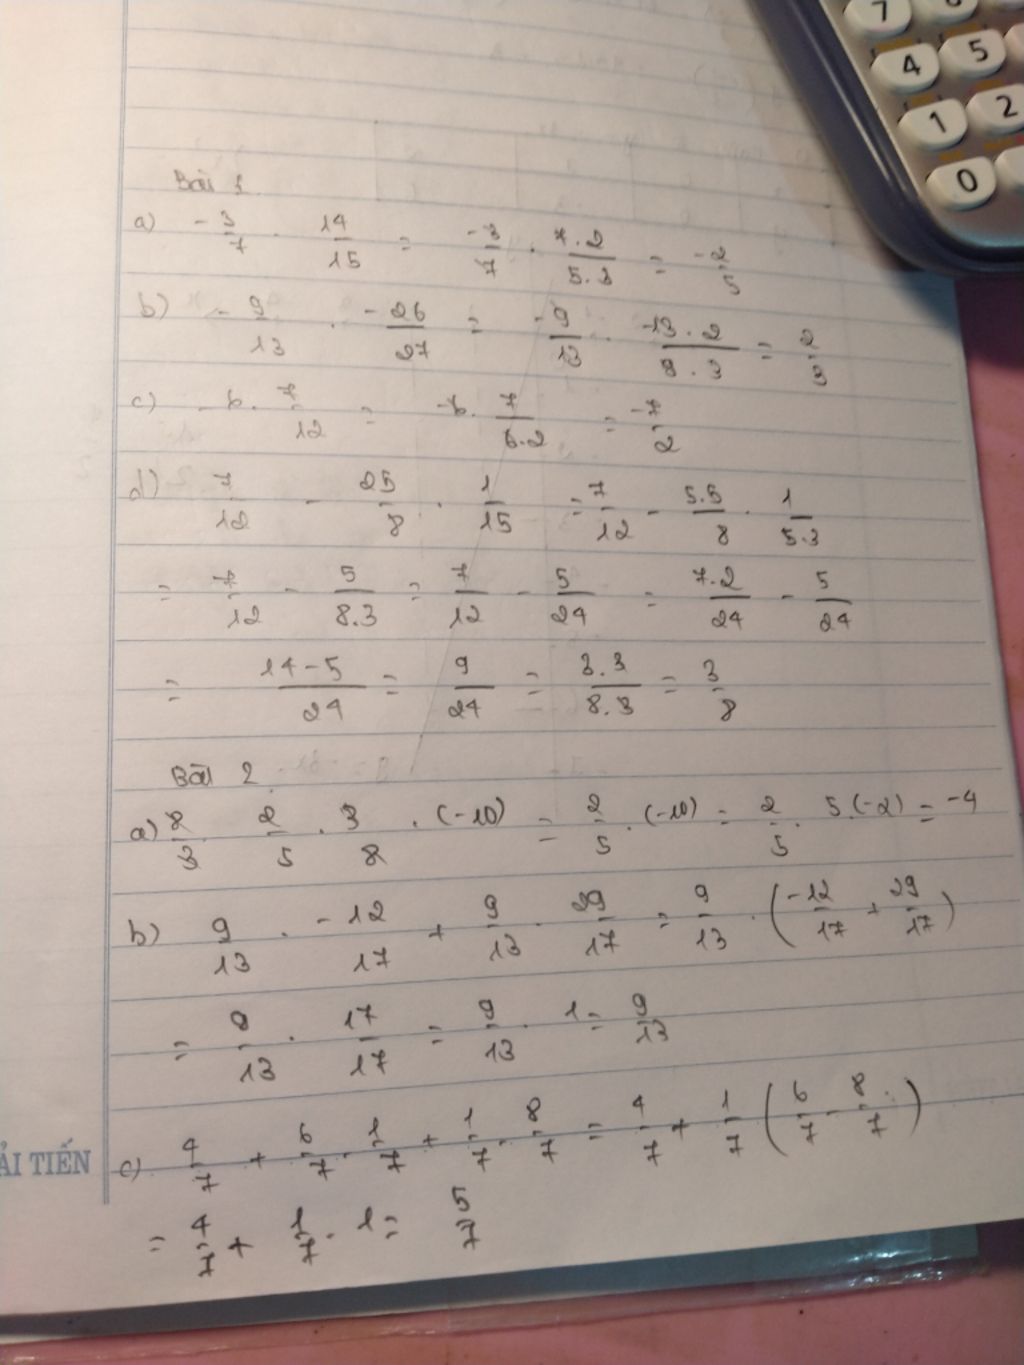 7
4 5
1 2
0
Bài 1
a) -3/7 . 14/15 = -3/7 . 7.2/5.3 = -2/5
b) -9/13 . -26/27 = -9/13 . -13.2/9.3 = 2/3
c) -6 . 7/12 = -6 . 7/6.2 = -7/2
d) 7/12 - 25/8 . 1/15 = 7/12 - 5.5/8 . 1/5.3
= 7/12 - 5/8.3 = 7/12 - 5/24 = 7.2/24 - 5/24
= 14-5/24 = 9/24 = 3.3/8.3 = 3/8
Bài 2
a) 8/3 . 2/5 . 3/8 . (-10) = 2/5 . (-10) = 2/5 . 5.(-2) = -4
b) 9/13 . -12/17 + 9/13 . 29/17 = 9/13 . (-12/17 + 29/17)
= 9/13 . 17/17 = 9/13 . 1 = 9/13
c) 4/7 + 6/7 . 1/7 + 1/7 . 8/7 = 4/7 + 1/7 (6/7 - 8/7)
= 4/7 + 1/7 . 1 = 5/7
ẢI TIẾN